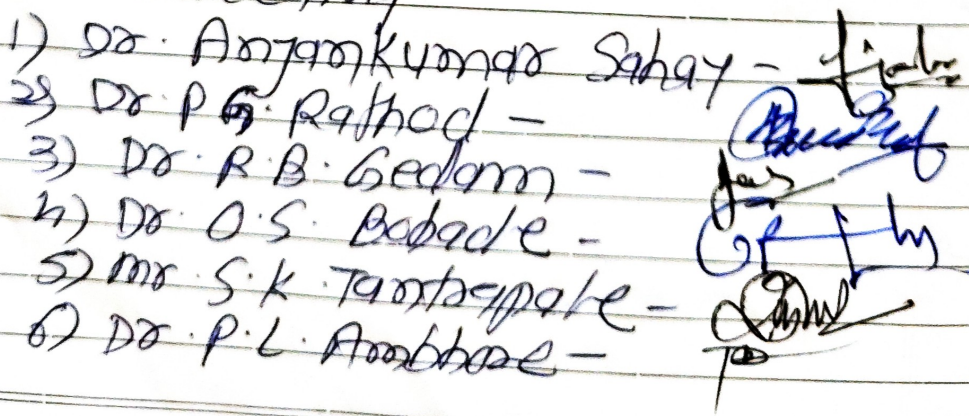 1) Dr. Anjankumar Sahay -
2) Dr. P G. Rathod -
3) Dr. R.B. Gedam -
4) Dr. O.S. Bobade -
5) Mr. S.K. Tambapale -
6) Dr. P.L. Ambhore -